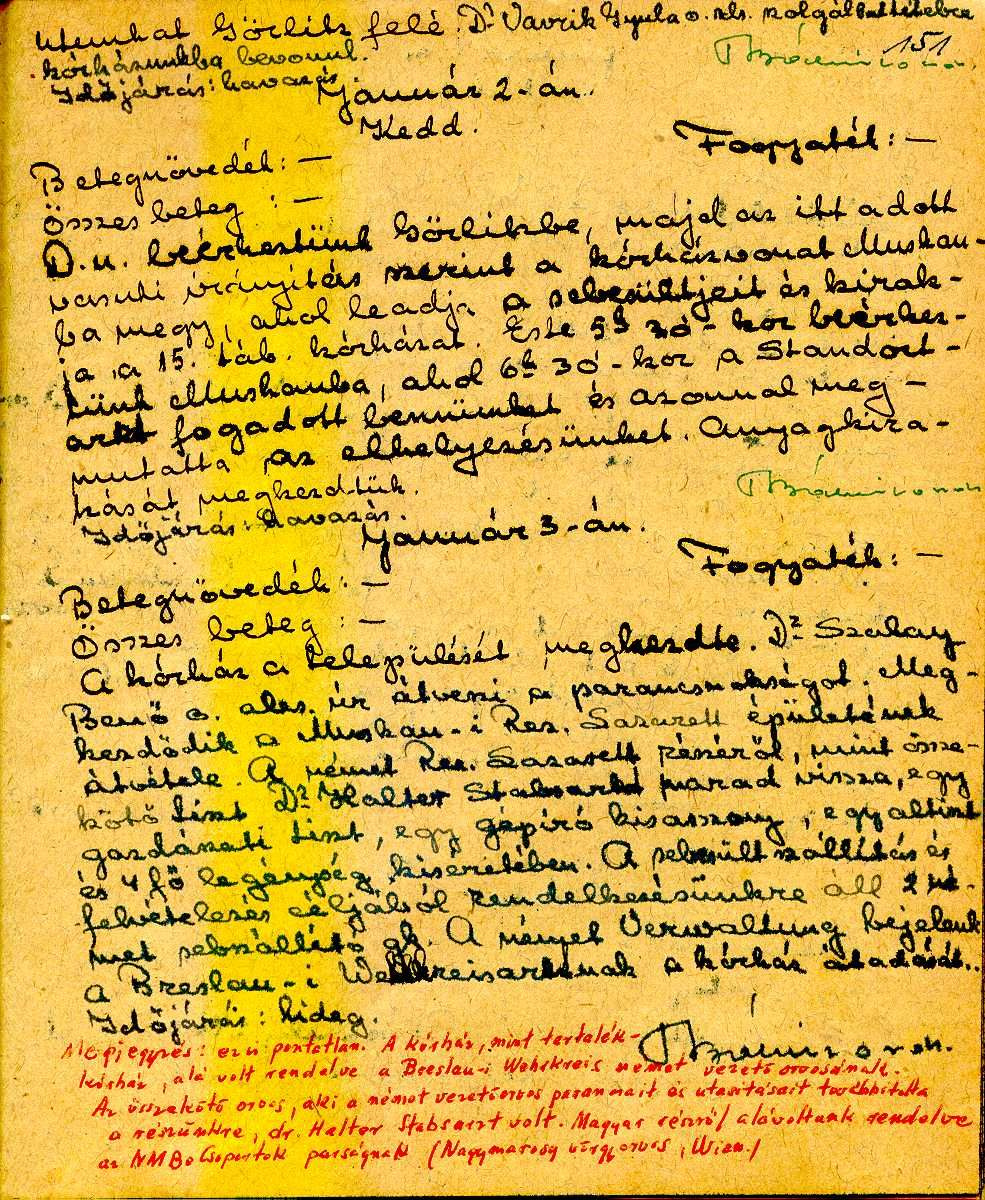 utunkat Görlitz felé. Dr Vavrik Gyula o. szolgálattételre
151
kórházunkba bevonul.
Időjárás: havazás
Január 2-án.
Kedd.
Fogyaték: —
Betegnövedék: —
Összes beteg : —
D.u. beérkeztünk Görlitzbe, majd az itt adott
vasuti irányítás szerint a kórházvonat Muskau-
ba megy, ahol leadja a sebesültjeit és kirak-
ja a 15. táb. kórházat. Este 5h 30'-kor beérkez-
tünk Muskauba, ahol 6h 30'-kor a Standort-
arzt fogadott bennünket és azonnal meg-
mutatta az elhelyezésünket. Anyagkira-
kását megkezdtük.
Időjárás: havazás.
Január 3-án.
Fogyaték: —
Betegnövedék: —
Összes beteg : —
A kórház a települését megkezdte. Dr Szalay
Benő o. alez. úr átveszi a parancsnokságot. Meg-
kezdődik a Muskau-i Res. Lazarett épületének
átvétele. A német Res. Lazarett részéről, mint össze-
kötő tiszt Dr Halter Stabsarzt marad vissza, egy
gazdászati tiszt, egy gépíró kisasszony, egy altiszt
és 4 fő legénység kíséretében. A sebesült szállítás és
felvételezés céljából rendelkezésünkre áll 2 né-
met sebszállító gk. A német Verwaltung bejelenti
a Breslau-i Wehrkreisarztnak a kórház átadását.
Időjárás: hideg.
Megjegyzés: ez is pontatlan. A kórház, mint tartalék-
kórház, alá volt rendelve a Breslau-i Wehrkreis német vezető orvosának.
Az összekötő orvos, aki a német vezetőorvos parancsait és utasításait továbbította
a részünkre, dr. Halter Stabsarzt volt. Magyar részről alávoltunk rendelve
az NMBo Csoportok parságnak (Nagymarosy törzsorvos, Wien.)